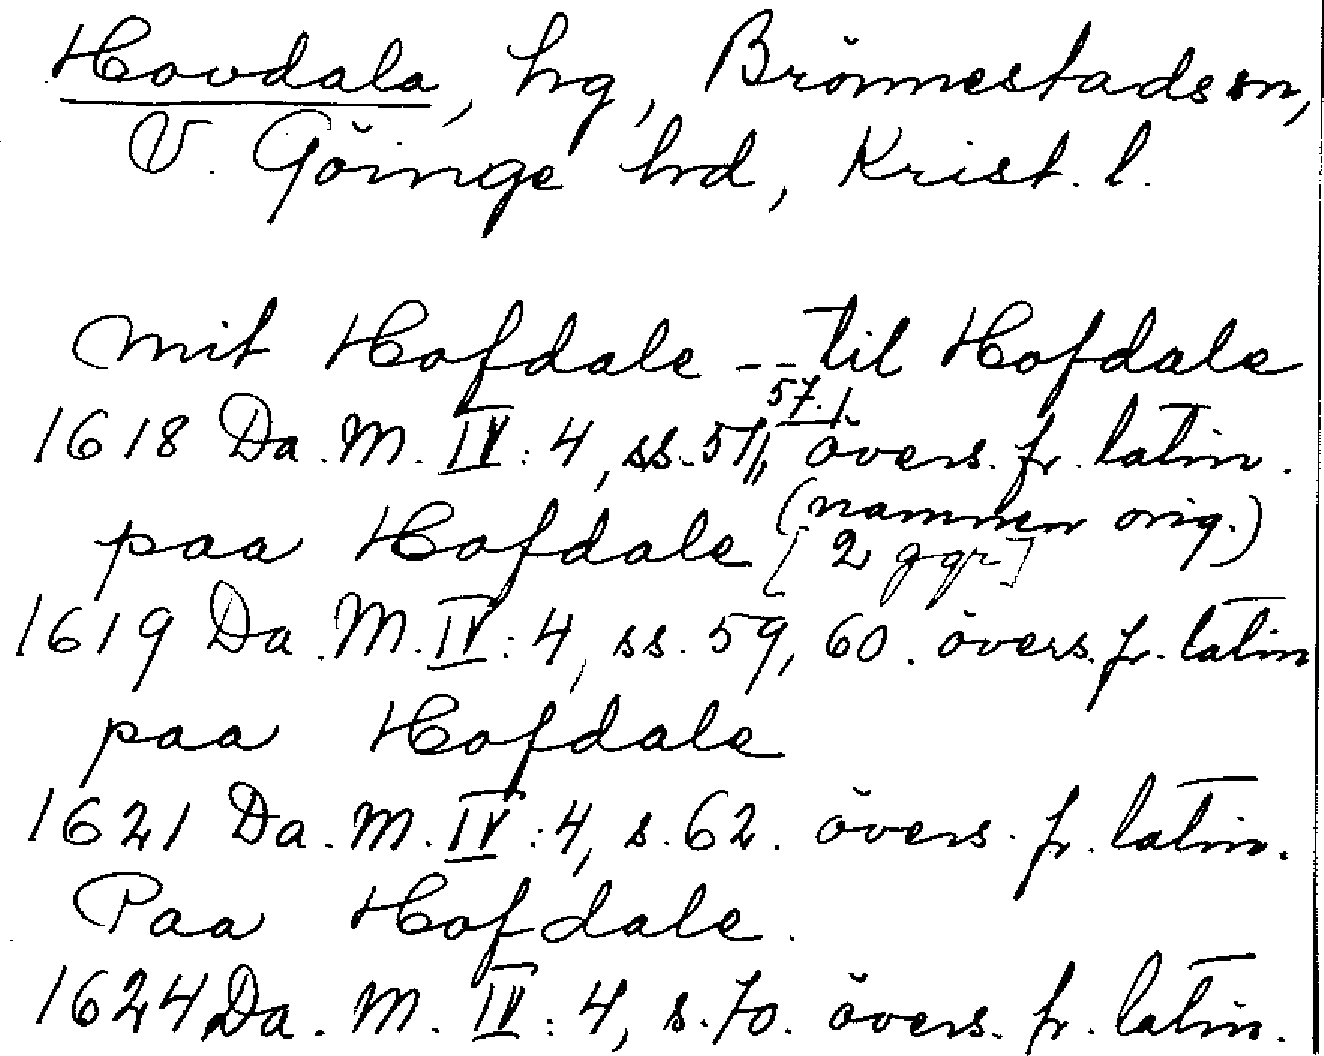 Hovdala, hg, Brönnestads sn,
V. Göinge hd, Krist. l.
mit Hofdale -- til Hofdale
1618 Da. M. IV: 4, ss. 57, 57. övers. fr. latin.
(namnen orig.)
paa Hofdale [2 ggr]
1619 Da. M. IV: 4, ss. 59, 60. övers. fr. latin
paa Hofdale
1621 Da. M. IV: 4, s. 62. övers. fr. latin.
Paa Hofdale.
1624 Da. M. IV: 4, s. 70. övers. fr. latin.